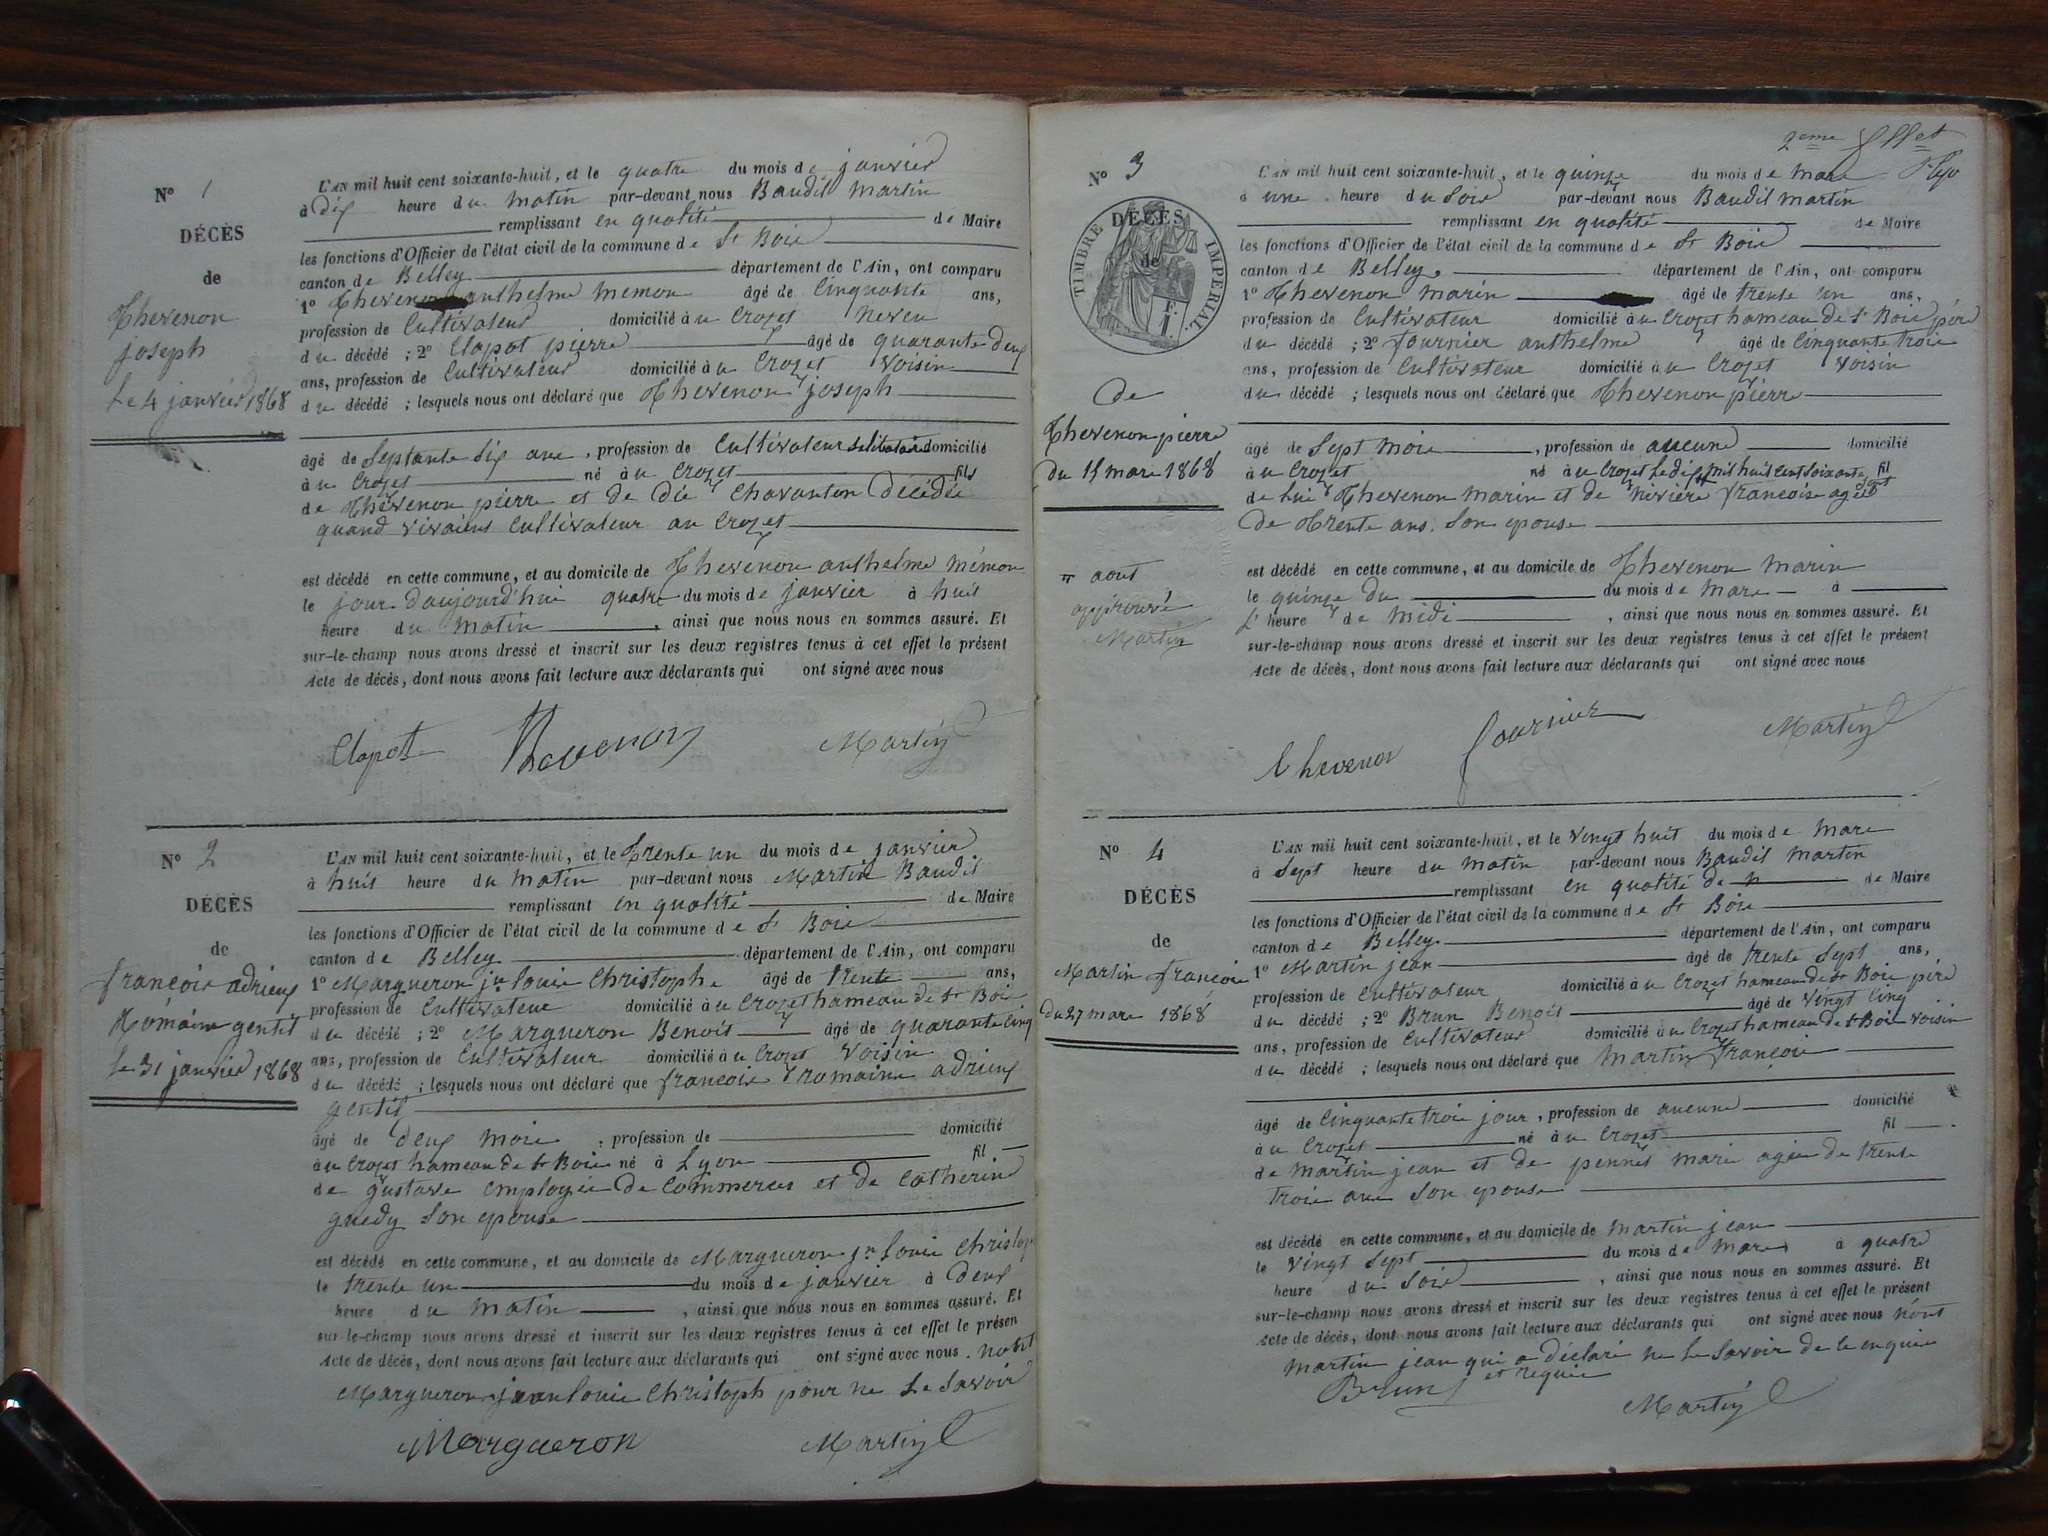 N° 1
DÉCÈS
de
Thevenon
joseph
Le 4 janvier 1868
L'AN mil huit cent soixante-huit, et le quatre du mois de janvier
à dix heure du matin par-devant nous Baudit Martin
remplissant en qualité de Maire
les fonctions d'Officier de l'état civil de la commune de St Bois
canton de Belley département de l'Ain, ont comparu
1° Thevenon anthelme memon âgé de Cinquante ans,
profession de Cultivateur domicilié à u Crozet neveu
du décédé ; 2° Clapot pierre âgé de quarante deux
ans, profession de Cultivateur domicilié à u Crozet Voisin
du décédé ; lesquels nous ont déclaré que Thevenon joseph
âgé de Septante Six ans, profession de Cultivateur Selibataire domicilié
à u Crozet né à u Crozet fils
de Thévenon pierre et de die Chavanton Décédés
quand vivaient Cultivateur au Crozet
est décédé en cette commune, et au domicile de Thevenon anthelme mémon
le jour d'aujourd'hui quatre du mois de janvier à huit
heure du matin, ainsi que nous nous en sommes assuré. Et
sur-le-champ nous avons dressé et inscrit sur les deux registres tenus à cet effet le présent
Acte de décès, dont nous avons fait lecture aux déclarants qui ont signé avec nous
Clapot Thevenon Martin
N° 2
DÉCÈS
de
françois adrien
Romain gentit
Le 31 janvier 1868
L'AN mil huit cent soixante-huit, et le Trente un du mois de janvier
à huit heure du matin par-devant nous Martin Baudit
remplissant en qualité de Maire
les fonctions d'Officier de l'état civil de la commune de St Bois
canton de Belley département de l'Ain, ont comparu
1° Margueron jn Louis Christophe âgé de trente ans,
profession de Cultivateur domicilié à u Crozet hameau de St Bois
du décédé ; 2° Margueron Benoit âgé de quarante cinq
ans, profession de Cultivateur domicilié à u Crozet Voisin
du décédé ; lesquels nous ont déclaré que françois romain adrien
gentit
âgé de deux mois, profession de domicilié
à u Crozet hameau de St Bois né à Lyon fil
de gustave employée de Commerces et de Catherin
guedy Son epouse
est décédé en cette commune, et au domicile de Margueron jn Louis Christop
le trente un du mois de janvier à Deux
heure du matin, ainsi que nous nous en sommes assuré. Et
sur-le-champ nous avons dressé et inscrit sur les deux registres tenus à cet effet le présen
Acte de décès, dont nous avons fait lecture aux déclarants qui ont signé avec nous. nont
Margueron jean Louis Christoph pour ne Le Savoir
Margueron Martin
2eme
N° 3
TIMBRE IMPÉRIAL
DÉCÈS
de
De
Thevenon pierre
du 15 mars 1868
aout
approuvé
Martin
L'AN mil huit cent soixante-huit, et le quinze du mois de mars
à une heure du Soir par-devant nous Baudit martin
remplissant en qualité de Maire
les fonctions d'Officier de l'état civil de la commune de St Bois
canton de Belley. département de l'Ain, ont comparu
1° Thevenon marin âgé de trente un ans,
profession de Cultivateur domicilié à u Crozet hameau de St Bois père
du décédé ; 2° fournier anthelme âgé de Cinquante trois
ans, profession de Cultivateur domicilié à u Crozet Voisin
du décédé ; lesquels nous ont déclaré que Thevenon pierre
âgé de Sept mois, profession de aucune domicilié
à u Crozet né à u Crozet Le dix mil huit cent soixante sept fil
de Lui Thevenon marin et de nivière françoise ageé
De Trente ans. Son epouse
est décédé en cette commune, et au domicile de Thevenon marin
le quinze du du mois de mars à
L' heure de midi, ainsi que nous nous en sommes assuré. Et
sur-le-champ nous avons dressé et inscrit sur les deux registres tenus à cet effet le présent
Acte de décès, dont nous avons fait lecture aux déclarants qui ont signé avec nous
Thevenon fournier Martin
N° 4
DÉCÈS
de
Martin françois
du 27 mars 1868
L'AN mil huit cent soixante-huit, et le Vingt huit du mois de mars
à Sept heure du matin par-devant nous Baudit Martin
remplissant en qualité de de Maire
les fonctions d'Officier de l'état civil de la commune de St Bois
canton de Belley département de l'Ain, ont comparu
1° Martin jean âgé de trente Sept ans,
profession de Cultivateur domicilié à u Crozet hameau de St Bois père
du décédé ; 2° Brun Benoit âgé de Vingt Cinq
ans, profession de Cultivateur domicilié à u Crozet hameau de St Bois Voisin
du décédé ; lesquels nous ont déclaré que Martin françois
âgé de Cinquante trois jour, profession de aucune domicilié
à u Crozet né à u Crozet fil
de martin jean et de pennet marie agée de trente
trois ans Son epouse
est décédé en cette commune, et au domicile de Martin jean
le Vingt Sept du mois de mars à quatre
heure du Soir, ainsi que nous nous en sommes assuré. Et
sur-le-champ nous avons dressé et inscrit sur les deux registres tenus à cet effet le présent
Acte de décès, dont nous avons fait lecture aux déclarants qui ont signé avec nous nont
Martin jean qui a déclaré ne Le Savoir de Le enquis
et requis
Brun Martin